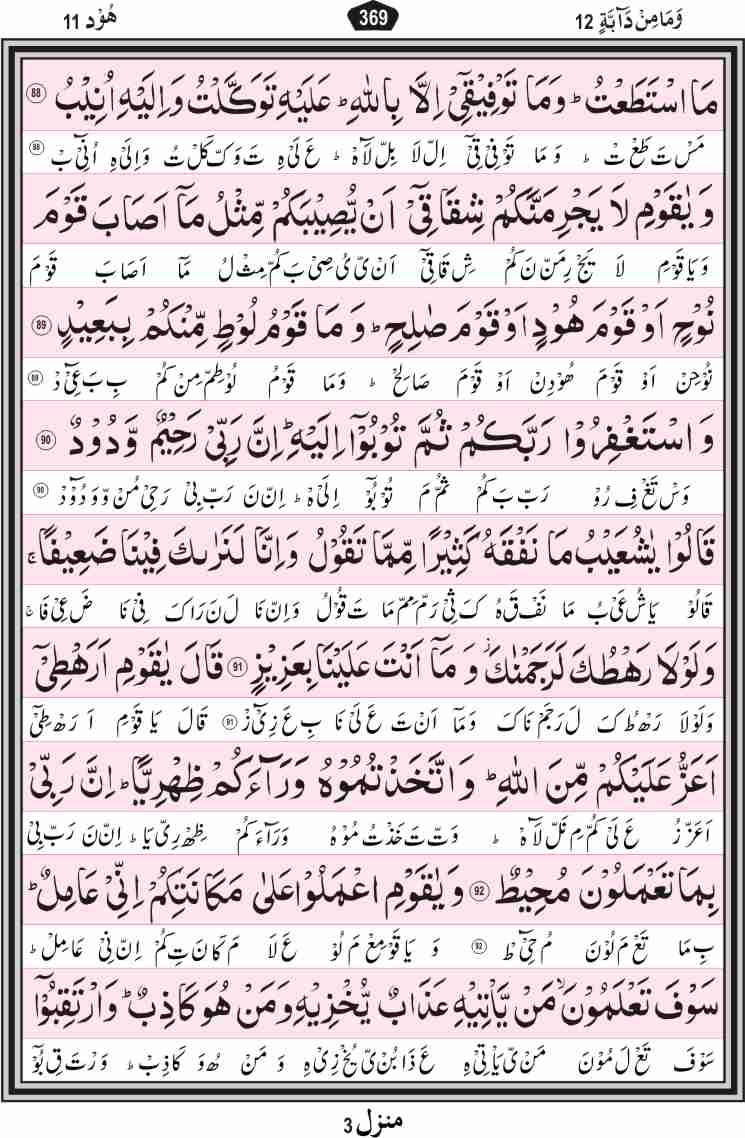 وَمَا مِنْ دَآبَّةٍ 12 369 هُوْد 11
مَا اسْتَطَعْتُ ؕ وَمَا تَوْفِيْقِيْۤ اِلَّا بِاللّٰهِ ؕ عَلَيْهِ تَوَكَّلْتُ وَاِلَيْهِ اُنِيْبُ 88
مَسْ تَ طَعْ تْ ؕ وَ مَا تَوْ فِىْ قِىْۤ اِلْ لَا بِلْ لَاهْ ؕ عَ لَىْ هِ تَ وَكْ كَلْ تُ وَ اِلَىْ هِ اُنِىْٓ بْ 88
وَيٰقَوْمِ لَا يَجْرِمَنَّكُمْ شِقَاقِيْۤ اَنْ يُّصِيْبَكُمْ مِّثْلُ مَاۤ اَصَابَ قَوْمَ
وَ يَا قَوْمِ لَا يَجْ رِ مَنْ نَ كُمْ شِ قَا قِىْۤ اَنْ ىُّ صِىْ بَ كُمْ مِثْ لُ مَاۤ اَ صَابَ قَوْمَ
نُوْحٍ اَوْ قَوْمَ هُوْدٍ اَوْ قَوْمَ صٰلِحٍ ؕ وَ مَا قَوْمُ لُوْطٍ مِّنْكُمْ بِبَعِيْدٍ 89
نُوْحِنْ اَوْ قَوْمَ هُوْدِنْ اَوْ قَوْمَ صَا لِحْ ؕ وَمَا قَوْمُ لُوْطِمْ مِنْ كُمْ بِ بَ عِىْٓ دْ 89
وَاسْتَغْفِرُوْا رَبَّكُمْ ثُمَّ تُوْبُوْۤا اِلَيْهِ ؕ اِنَّ رَبِّيْ رَحِيْمٌ وَّدُوْدٌ 90
وَسْ تَغْ فِ رُوْ رَبْ بَ كُمْ ثُمْ مَ تُوْ بُوْۤ اِلَىْ هْ ؕ اِنْ نَ رَبْ بِىْ رَحِىْ مُنْ وَ وَ دُوْٓدْ 90
قَالُوْا يٰشُعَيْبُ مَا نَفْقَهُ كَثِيْرًا مِّمَّا تَقُوْلُ وَاِنَّا لَنَرٰىكَ فِيْنَا ضَعِيْفًا ۚ
قَالُوْ يَا شُ عَىْ بُ مَا نَفْ قَ هُ كَ ثِىْ رَمْ مِمْ مَا تَ قُوْلُ وَ اِنْ نَا لَ نَ رَاكَ فِىْ نَا ضَ عِىْ فَا ۚ
وَلَوْلَا رَهْطُكَ لَرَجَمْنٰكَ ؗ وَ مَاۤ اَنْتَ عَلَيْنَا بِعَزِيْزٍ 91 قَالَ يٰقَوْمِ اَرَهْطِيْۤ
وَلَوْ لَا رَهْ طُ كَ لَ رَجَمْ نَاكَ وَ مَاۤ اَنْ تَ عَ لَىْ نَا بِ عَ زِىْٓ زْ 91 قَالَ يَا قَوْمِ اَ رَهْ طِىْۤ
اَعَزُّ عَلَيْكُمْ مِّنَ اللّٰهِ ؕ وَاتَّخَذْتُمُوْهُ وَرَآءَكُمْ ظِهْرِيًّا ؕ اِنَّ رَبِّيْ
اَعَزْ زُ عَ لَىْ كُمْ مِ نَلْ لَاهْ ؕ وَتْ تَ خَذْ تُ مُوْ هُ وَرَآءَ كُمْ ظِهْ رِىْ يَا ؕ اِنْ نَ رَبْ بِىْ
بِمَا تَعْمَلُوْنَ مُحِيْطٌ 92 وَيٰقَوْمِ اعْمَلُوْا عَلٰى مَكَانَتِكُمْ اِنِّيْ عَامِلٌ ؕ
بِ مَا تَعْ مَ لُوْنَ مُ حِىْٓ طْ 92 وَ يَا قَوْ مِعْ مَ لُوْ عَ لَا مَ كَا نَ تِ كُمْ اِنْ نِىْ عَا مِلْ ؕ
سَوْفَ تَعْلَمُوْنَ ۙ مَنْ يَّاْتِيْهِ عَذَابٌ يُّخْزِيْهِ وَمَنْ هُوَ كَاذِبٌ ؕ وَارْتَقِبُوْۤا
سَوْفَ تَعْ لَ مُوْنَ مَنْ ىْ يَاْ تِىْ هِ عَ ذَا بُنْ ىُّ خْ زِىْ هِ وَ مَنْ هُوَ كَا ذِبْ ؕ وَرْ تَ قِ بُوْۤ
منزل 3